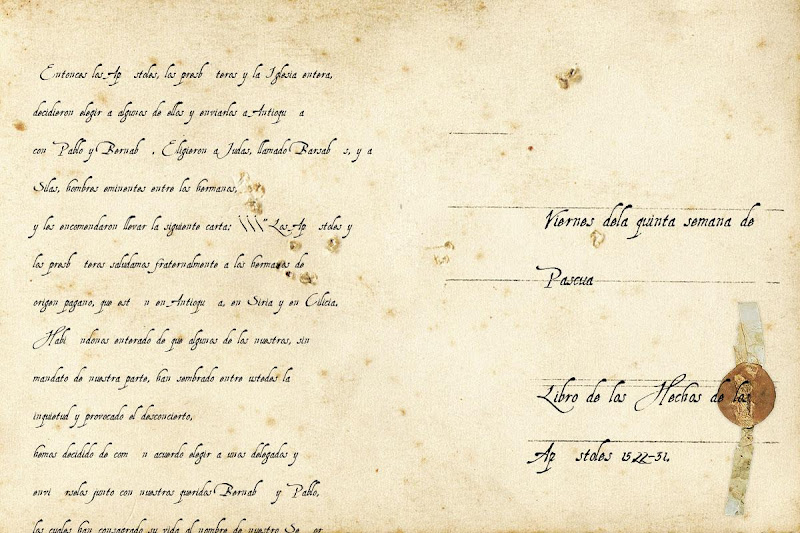 Entonces los Ap stoles, los presb teros y la Iglesia entera,
decidieron elegir a algunos de ellos y enviarlos a Antioqu a
con Pablo y Bernab . Eligieron a Judas, llamado Barsab s, y a
Silas, hombres eminentes entre los hermanos,
y les encomendaron llevar la siguiente carta: \\\"Los Ap stoles y
los presb teros saludamos fraternalmente a los hermanos de
origen pagano, que est n en Antioqu a, en Siria y en Cilicia.
Habi ndonos enterado de que algunos de los nuestros, sin
mandato de nuestra parte, han sembrado entre ustedes la
inquietud y provocado el desconcierto,
hemos decidido de com n acuerdo elegir a unos delegados y
envi rselos junto con nuestros queridos Bernab y Pablo,
los cuales han consagrado su vida al nombre de nuestro Se or
Viernes dela quinta semana de
Pascua
Libro de los Hechos de los
Ap stoles 15,22-31.